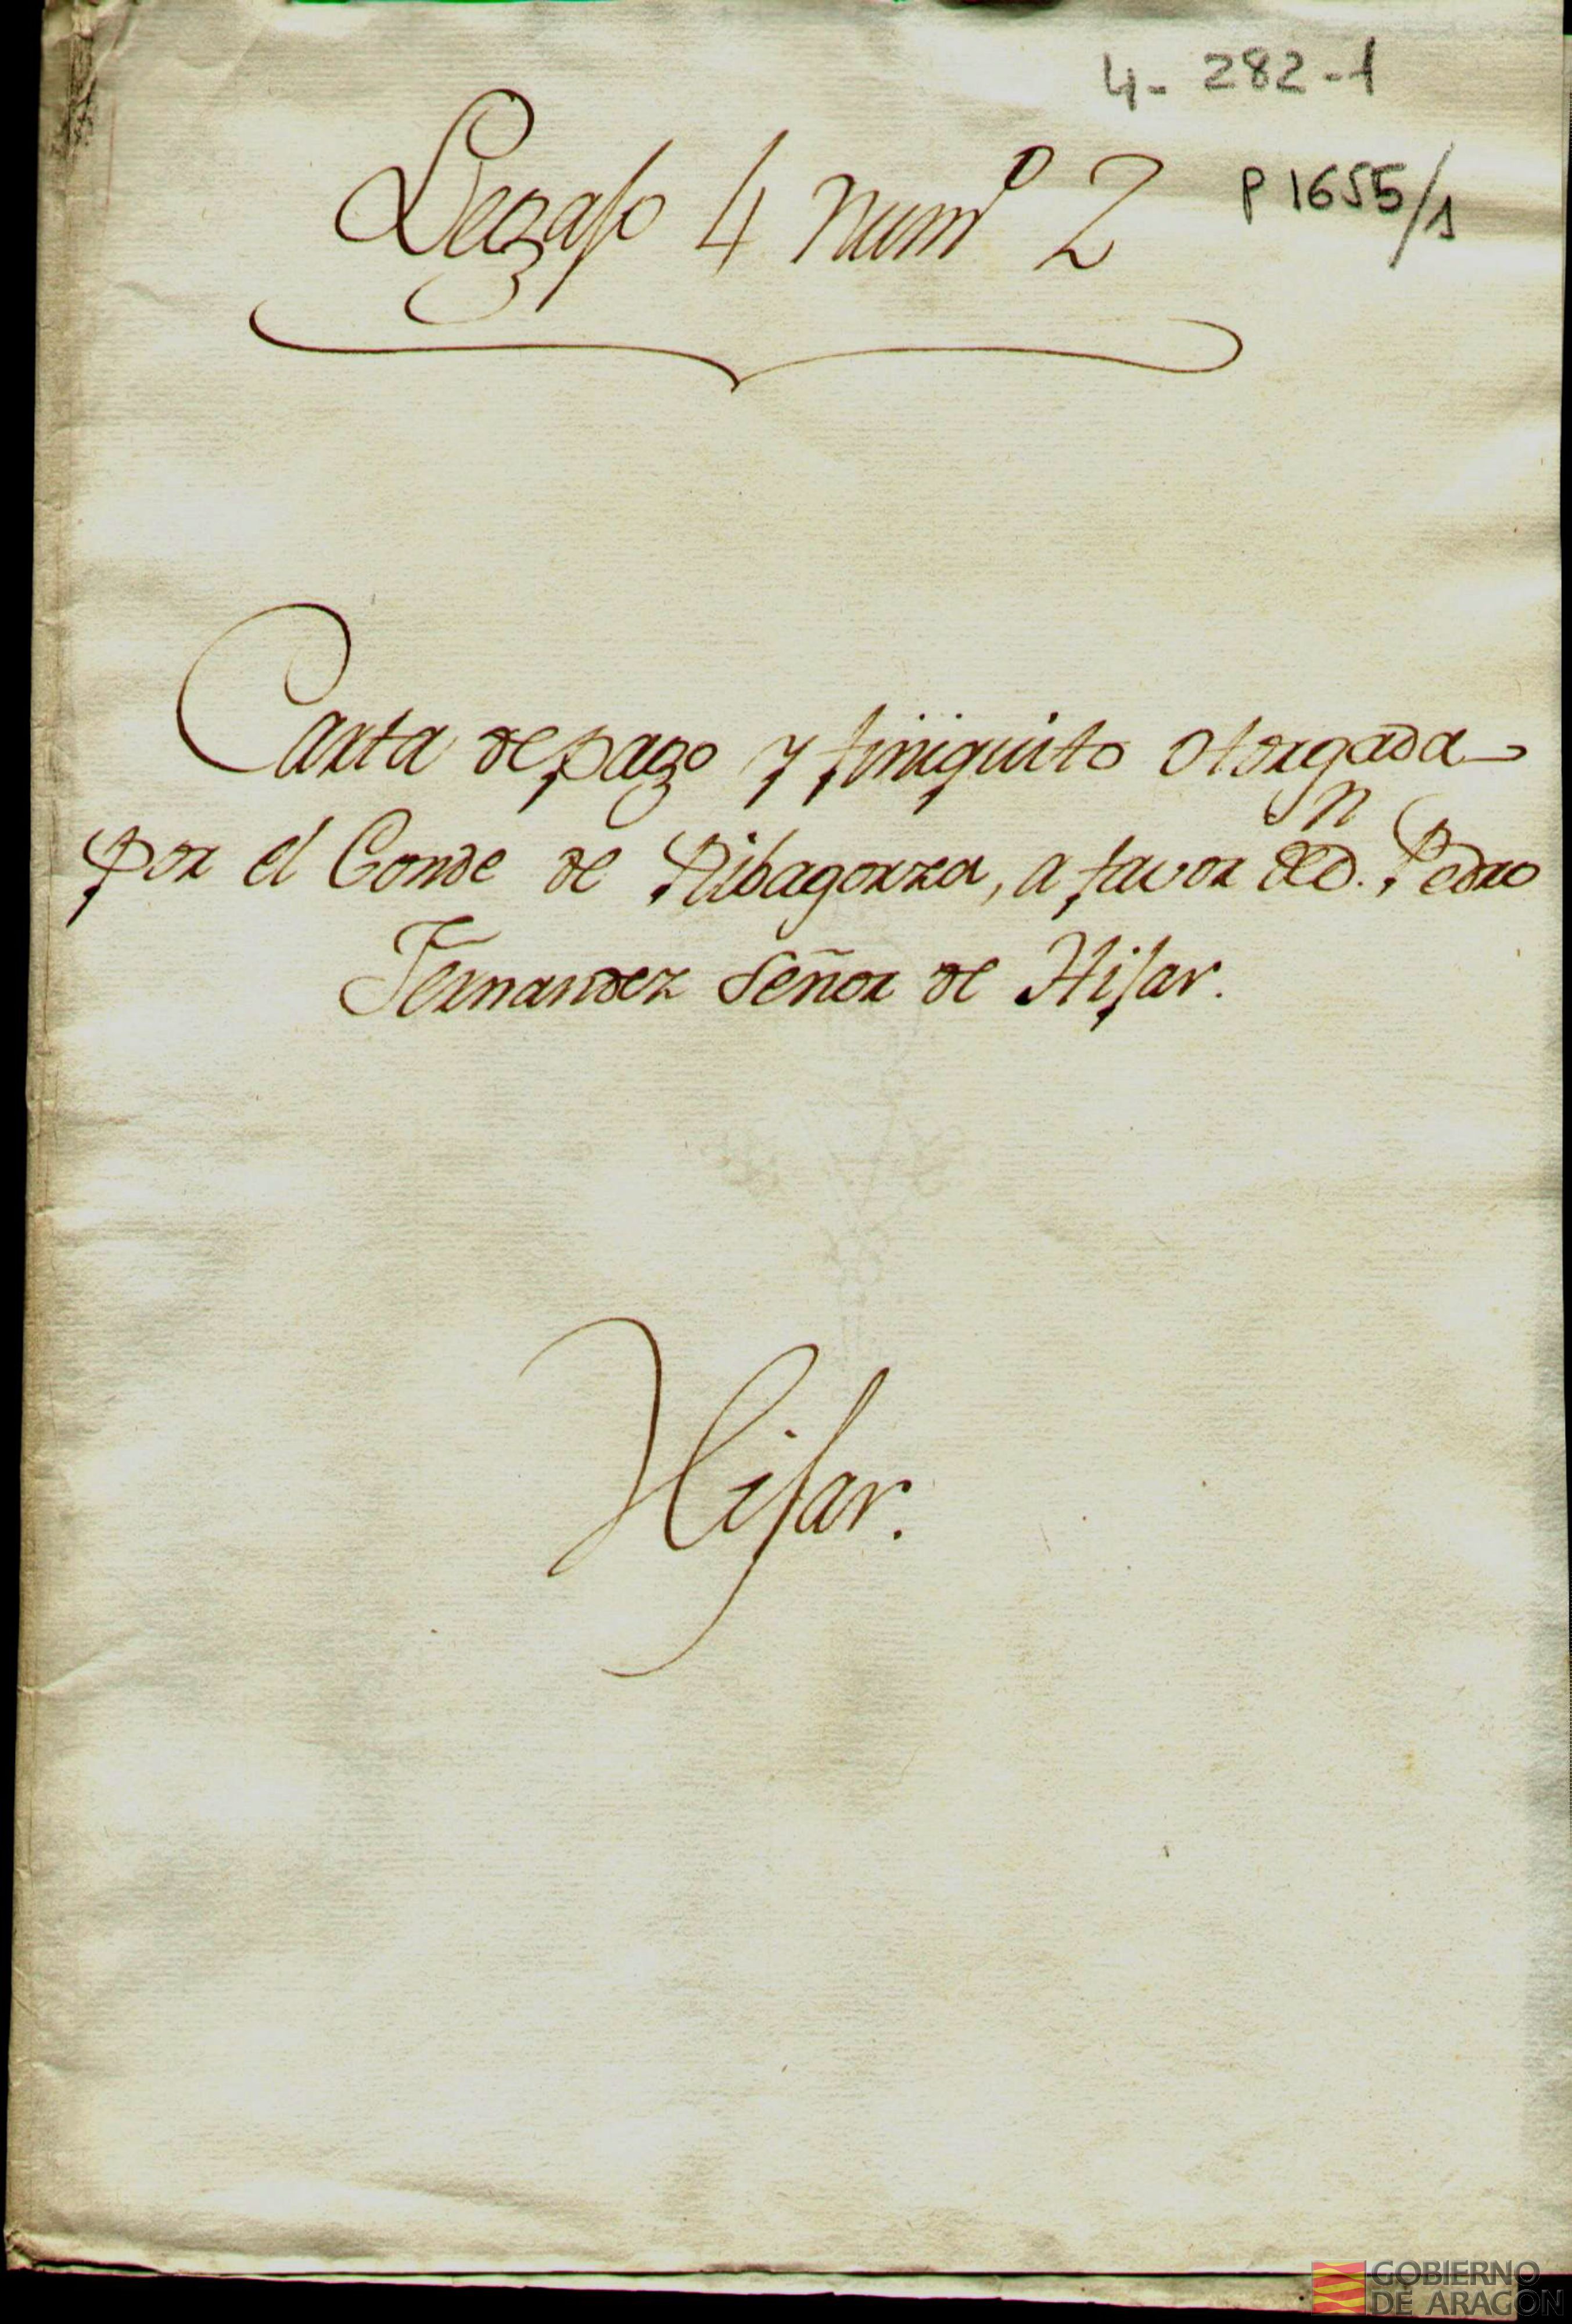 4-282-1
Legajo 4 Numº 2
P 1655/1
Carta de pago y finiquito otorgada
por el Conde de Ribagorza, a favor de Dn. Pedro
Fernandez Señor de Hijar.
Hijar.
GOBIERNO
DE ARAGON